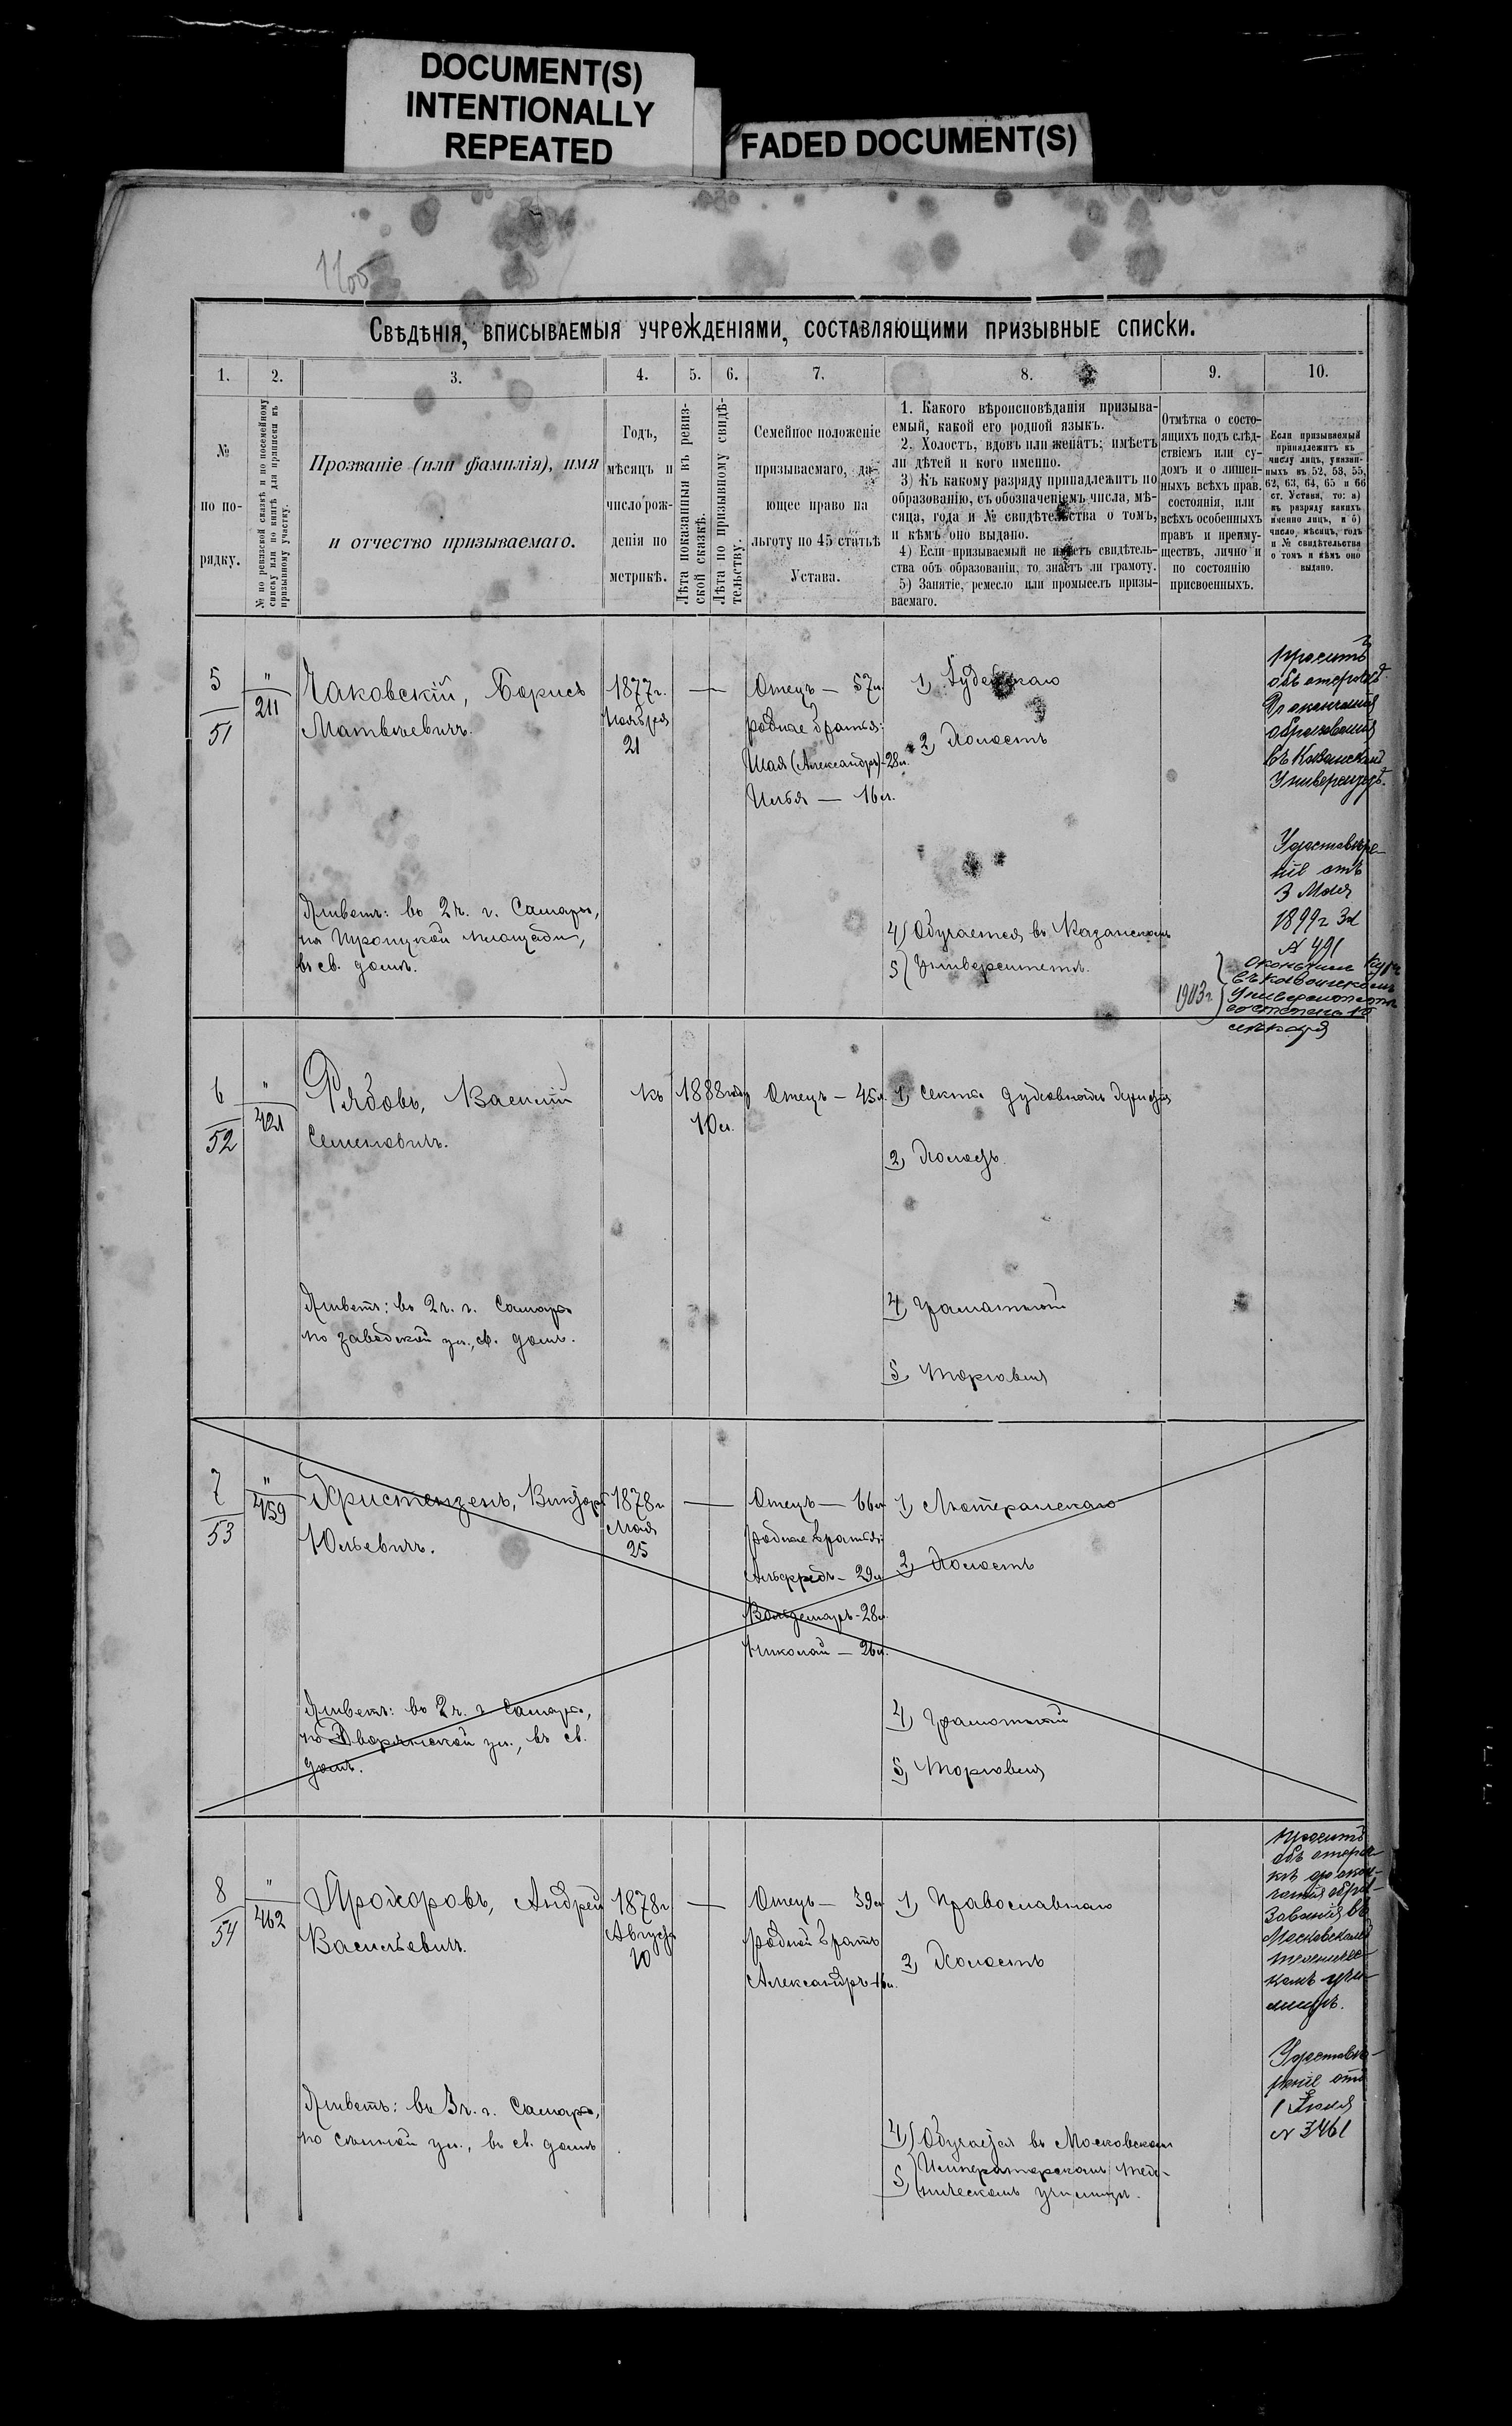 DOCUMENT(S)
INTENTIONALLY
REPEATED
FADED DOCUMENT(S)
11об
Свѣдѣнія, вписываемыя учрежденіями, составляющими призывные списки.
1.
2.
3.
4.
5.
6.
7.
8.
9.
10.
№
по по-
рядку.
№ по ревизской сказкѣ и по посемейному
списку или по книгѣ для приписки къ
призывному участку.
Прозваніе (или фамилія), имя
и отчество призываемаго.
Годъ,
мѣсяцъ и
число рож-
денія по
метрикѣ.
Лѣта показанныя въ ревиз-
ской сказкѣ.
Лѣта по призывному свидѣ-
тельству.
Семейное положеніе
призываемаго, да-
ющее право на
льготу по 45 статьѣ
Устава.
1. Какого вѣроисповѣданія призыва-
емый, какой его родной языкъ.
2. Холостъ, вдовъ или женатъ; имѣетъ
ли дѣтей и кого именно.
3) Къ какому разряду принадлежитъ по
образованію, съ обозначеніемъ числа, мѣ-
сяца, года и № свидѣтельства о томъ,
и кѣмъ оно выдано.
4) Если призываемый не имѣетъ свидѣтель-
ства объ образованіи, то знаетъ ли грамоту.
5) Занятіе, ремесло или промыселъ призы-
ваемаго.
Отмѣтка о состо-
ящихъ подъ слѣд-
ствіемъ или су-
домъ и о лишен-
ныхъ всѣхъ прав.
состоянія, или
всѣхъ особенныхъ
правъ и преиму-
ществъ, лично и
по состоянію
присвоенныхъ.
Если призываемый
принадлежитъ къ
числу лицъ, указан-
ныхъ въ 52, 53, 55,
62, 63, 64, 65 и 66
ст. Устава, то: а)
къ разряду какихъ
именно лицъ, и б)
число, мѣсяцъ, годъ
и № свидѣтельства
о томъ и кѣмъ оно
выдано.
5
51
"
211
Чаковскій, Борисъ
Матвѣевичъ.
1877г.
Ноября
21
—
Отецъ — 57л.
родные братья:
Шая (Александръ)-28л.
Илья — 16л.
1) Іудейскаго
2) Холостъ
Проситъ
объ отсрочкѣ
до окончанія
образованія
въ Казанскомъ
Университ.
Удостовѣре-
ніе отъ
3 Мая
1899г. за
№ 491
Живетъ: во 2ч. г. Самары,
на Троицкой площади,
въ св. домѣ.
4) Обучается въ Казанскомъ
5) Университетѣ.
1903г.
Окончилъ курсъ
въ Казанскомъ
Университетѣ
со степенью
лѣкаря
6
52
"
421
Рябовъ, Василій
Семеновичъ.
къ 1888 году
10л.
Отецъ — 45л.
1) Секта духовныхъ христіа
2) Холостъ.
Живетъ: во 2ч. г. Самары
по Заводской ул., св. домъ.
4) Грамотный
5) Торговля
7
53
"
459
Христензенъ, Викторъ
Юльевичъ.
1878г.
Мая
25
—
Отецъ — 66л.
родные братья:
Альфредъ — 29л.
Вольдемаръ - 28л.
Николай — 26л.
1) Лютеранскаго
2) Холостъ
Живетъ: во 2ч. г. Самары,
по Дворянской ул., въ св.
домѣ.
4) Грамотный
5) Торговля
8
54
"
462
Прохоровъ, Андрей
Васильевичъ.
1878г.
Августа
10
—
Отецъ — 39л.
родной братъ
Александръ -16л.
1) Православнаго
2) Холостъ
Проситъ
объ отсроч-
кѣ до окон-
чанія обра-
зованія въ
Московскомъ
техничес-
комъ учи-
лищѣ.
Удостовѣ-
реніе отъ
1 Іюня
№ 3461
Живетъ: въ 3ч. г. Самары,
по Сѣнной ул., въ св. домѣ
4) Обучается въ Московскомъ
5) Императорскомъ тех-
ническомъ училищѣ.